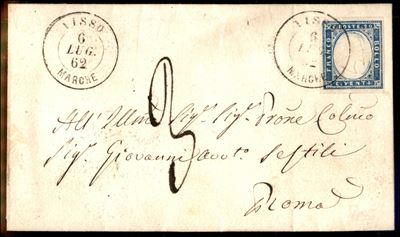 VISSO
6
LUG.
62
MARCHE
VISSO
6
LUG.
62
MARCHE
FRANCO
C. POSTE 20
BOLLO
C. VENTI
3
All' Illmo Sigr. Sigr. Prone Colmo
Sigr. Giovanni Avvto. Settili
Roma